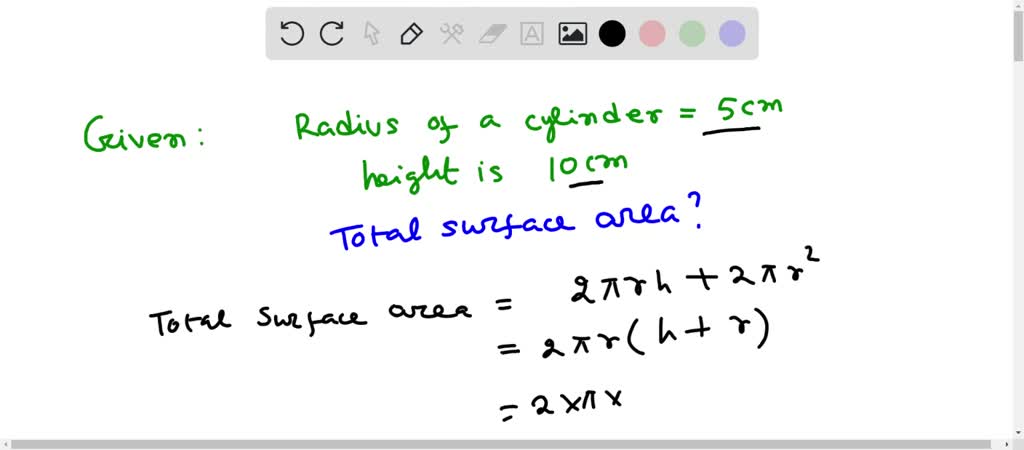 Given: Radius of a cylinder = 5cm
height is 10cm
Total surface area?
Total surface area = 2πrh + 2πr²
= 2πr(h+r)
= 2×π×